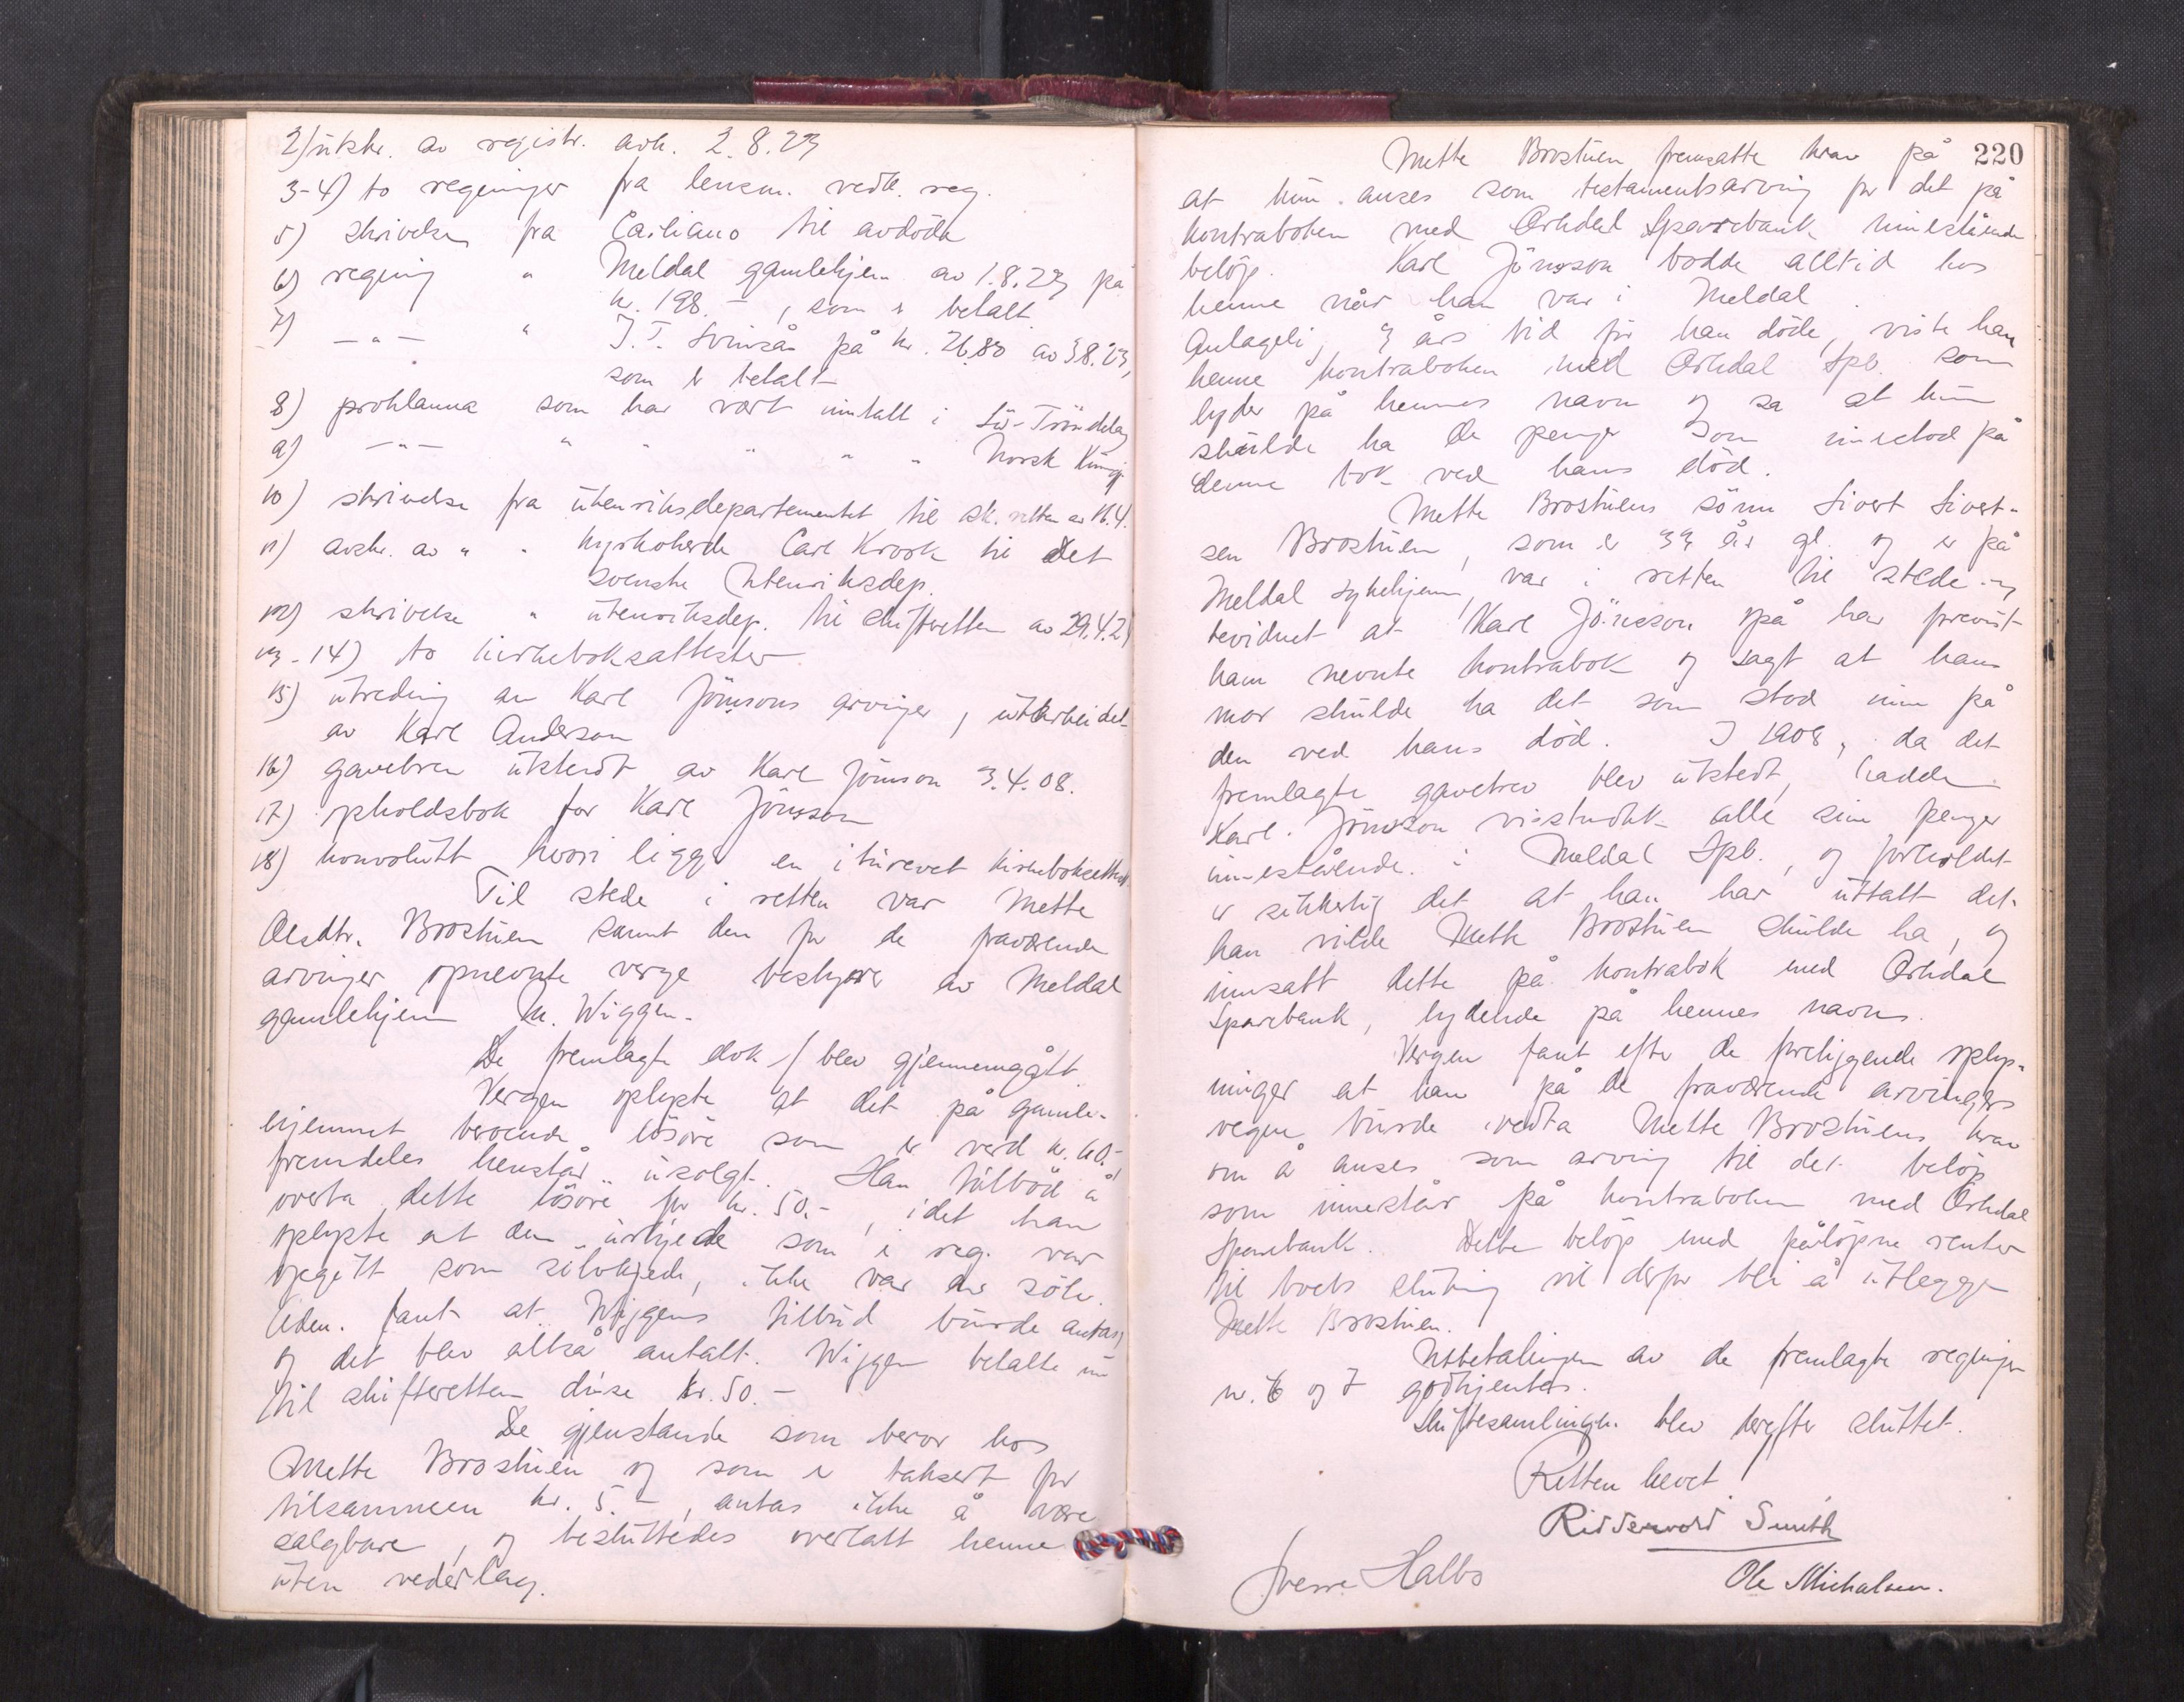 2) utskr. av registr. avh. 2.8.23
3-4) to regninger fra lensm. vedk. reg.
5) skrivelse fra Casiano til avdöde
6) regning " Meldal gamlehjem av 1.8.23 på
kr. 198.-, som er betalt
7) -"- " J. T. Svinsås på kr. 26.80 av 3.8.23,
som er betalt
8) proklama som har vært inntatt i Sör-Tröndelag
9) -"- " " " " " Norsk Kungj.
10) skrivelse fra utenriksdepartementet til sk.retten av 16.4.
11) avskr. av " " kyrkoherde Carl Krook til det
svenske Utenriksdep.
12) skrivelse " utenriksdep. til skifteretten av 29.4.24
13-14) to kirkeboksattester
15) utreding av Karl Jönsons arvinger, utarbeidet
av Karl Anderson
16) gavebrev utstedt av Karl Jönson 3.4.08.
17) opholdsbok for Karl Jönsson
18) konvolutt hvori ligger en iturevet kirkeboksattest.
Til stede i retten var Mette
Olsdtr. Brostuen samt den for de fraværende
arvinger opnevnte verge bestyrer av Meldal
gamlehjem M. Wiggen.
De fremlagte dok. blev gjennemgått.
Vergen oplyste at det på gamle-
hjemmet beroende lösöre som er verd kr. 60.-
fremdeles henstår usolgt. Han tilböd å
overta dette lösöre for kr. 50.-, idet han
oplyste at den urkjede som i reg. var
opgitt som sölvkjede, ikke var av sölv.
Adm. fant at Wiggens tilbud burde antas,
og det blev altså antatt. Wiggen betalte nu
til skifteretten disse kr. 50.-
De gjenstande som beror hos
Mette Brostuen og som er taksert for
tilsammen kr. 5.-, antas ikke å være
salgbare, og besluttedes overlatt henne
uten vederlag.
220
Mette Brostuen fremsatte krav på
at hun anses som testamentsarving for det på
kontraboken med Orkdal Sparebank innestående
belöp. Karl Jönsson bodde alltid hos
henne når han var i Meldal.
Antageli 3 års tid för han döde, viste han
henne kontraboken med Orkdal Spb. som
lyder på hennes navn og sa at hun
skulde ha de penger som innestod på
denne bok ved hans död.
Mette Brostuens sönn Sivert Sivert-
sen Brostuen, som er 33 år gl. og er på
Meldal sykehjem, var i retten til stede og
bevidnet at Karl Jönsson også har forevist
ham nevnte kontrabok og sagt at hans
mor skulde ha det som stod inne på
den ved hans död. I 1908, da det
fremlagte gavebrev blev utstedt, hadde
Karl Jönsson visstnokk alle sine penger
innestående i Meldal Spb., og forholdet
er sikkerlig det at han har uttatt det
han vilde Mette Brostuen skulde ha, og
innsatt dette på kontrabok med Orkdal
Sparebank, lydende på hennes navn.
Vergen fant efter de foreliggende oplys-
ninger at han på de fraværende arvingers
vegne burde vedta Mette Brostuens krav
om å anses som arving til det belöp
som innestår på kontraboken med Orkdal
Sparebank. Dette belöp med pålöpne renter
til boets slutning vil derfor bli å utlegges
Mette Brostuen.
Utbetalingen av de fremlagte regninger
nr. 6 og 7 godkjentes.
Skiftesamlingen blev derefter sluttet.
Retten hevet
Ridderwold Smith
Sverre Halbo Ole Michalsen.